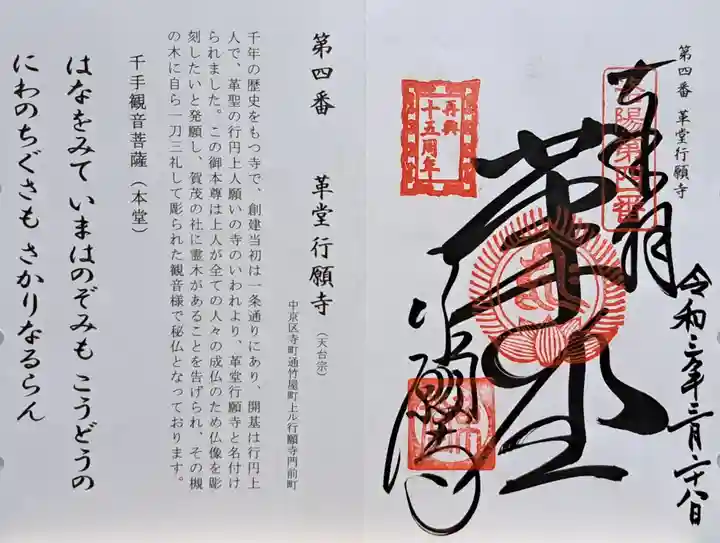 第四番 革堂行願寺
奉拝
洛陽第四番
再興
十五周年
革堂
行願寺
令和三年三月二十八日
第四番 革堂行願寺(天台宗)
中京区寺町通竹屋町上ル行願寺門前町
千年の歴史をもつ寺で、創建当初は一条通りにあり、開基は行円上
人で、革聖の行円上人願いの寺のいわれより、革堂行願寺と名付け
られました。この御本尊は上人が全ての人々の成仏のため仏像を彫
刻したいと発願し、賀茂の社に霊木があることを告げられ、その槻
の木に自ら一刀三礼して彫られた観音様で秘仏となっております。
千手観音菩薩(本堂)
はなをみて いまはのぞみも こうどうの
にわのちぐさも さかりなるらん